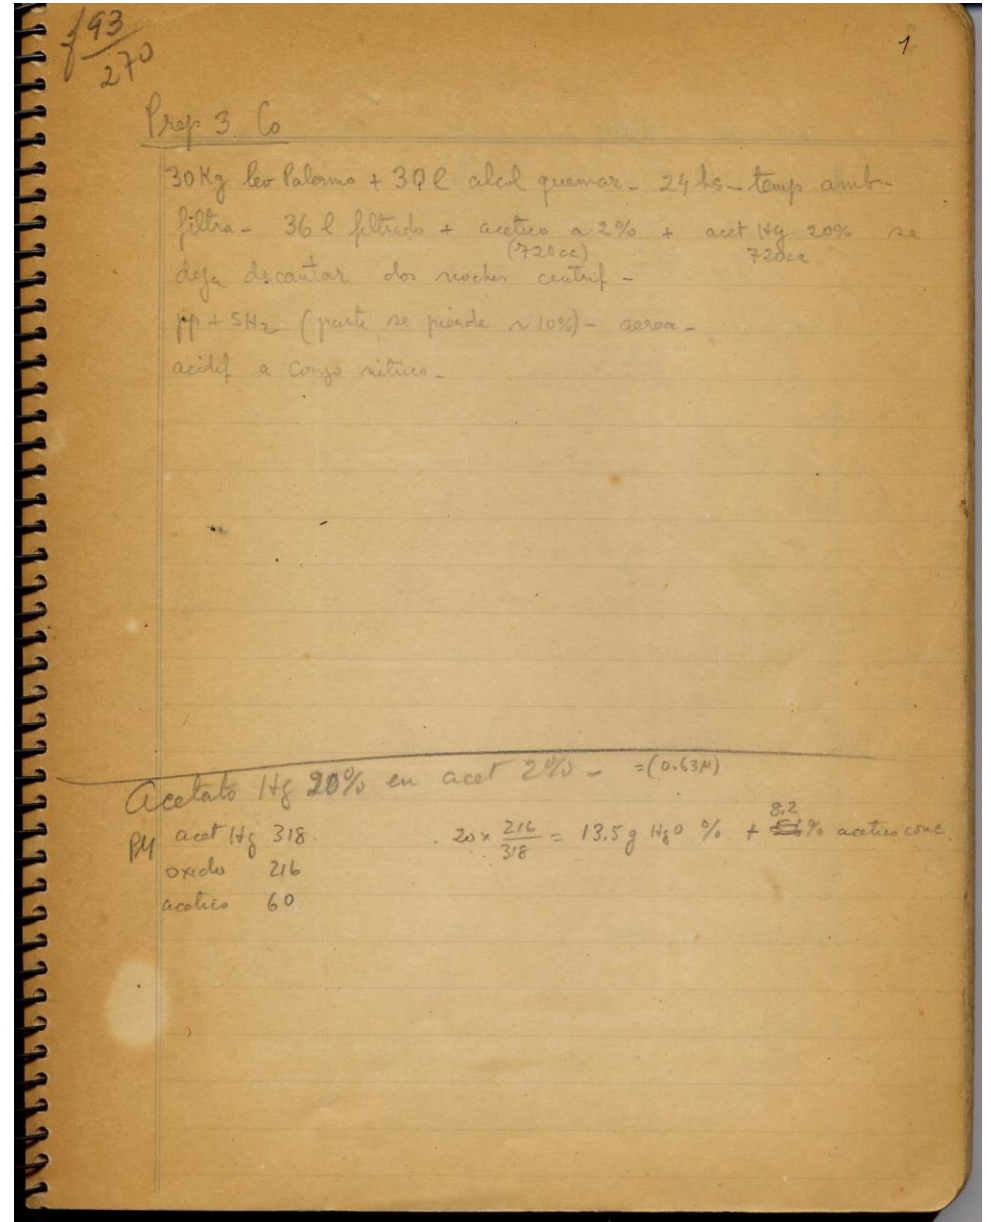 f 93/270
1
Prep 3 Co
30 Kg lev Palermo + 30 l alcol quemar - 24 hs - temp amb -
filtra - 36 l filtrado + acetico a 2% + acet Hg 20% se
(720cc) 720cc
deja decantar dos noches centrif -
pp + SH2 (parte se pierde ~ 10%) - aerea -
acidif a Congo nitrico -
Acetato Hg 20% en acet 2% - =(0.63M)
PM acet Hg 318. 20 x 216/318 = 13.5 g HgO % + 8.2 % acetico conc.
oxido 216
acetico 60